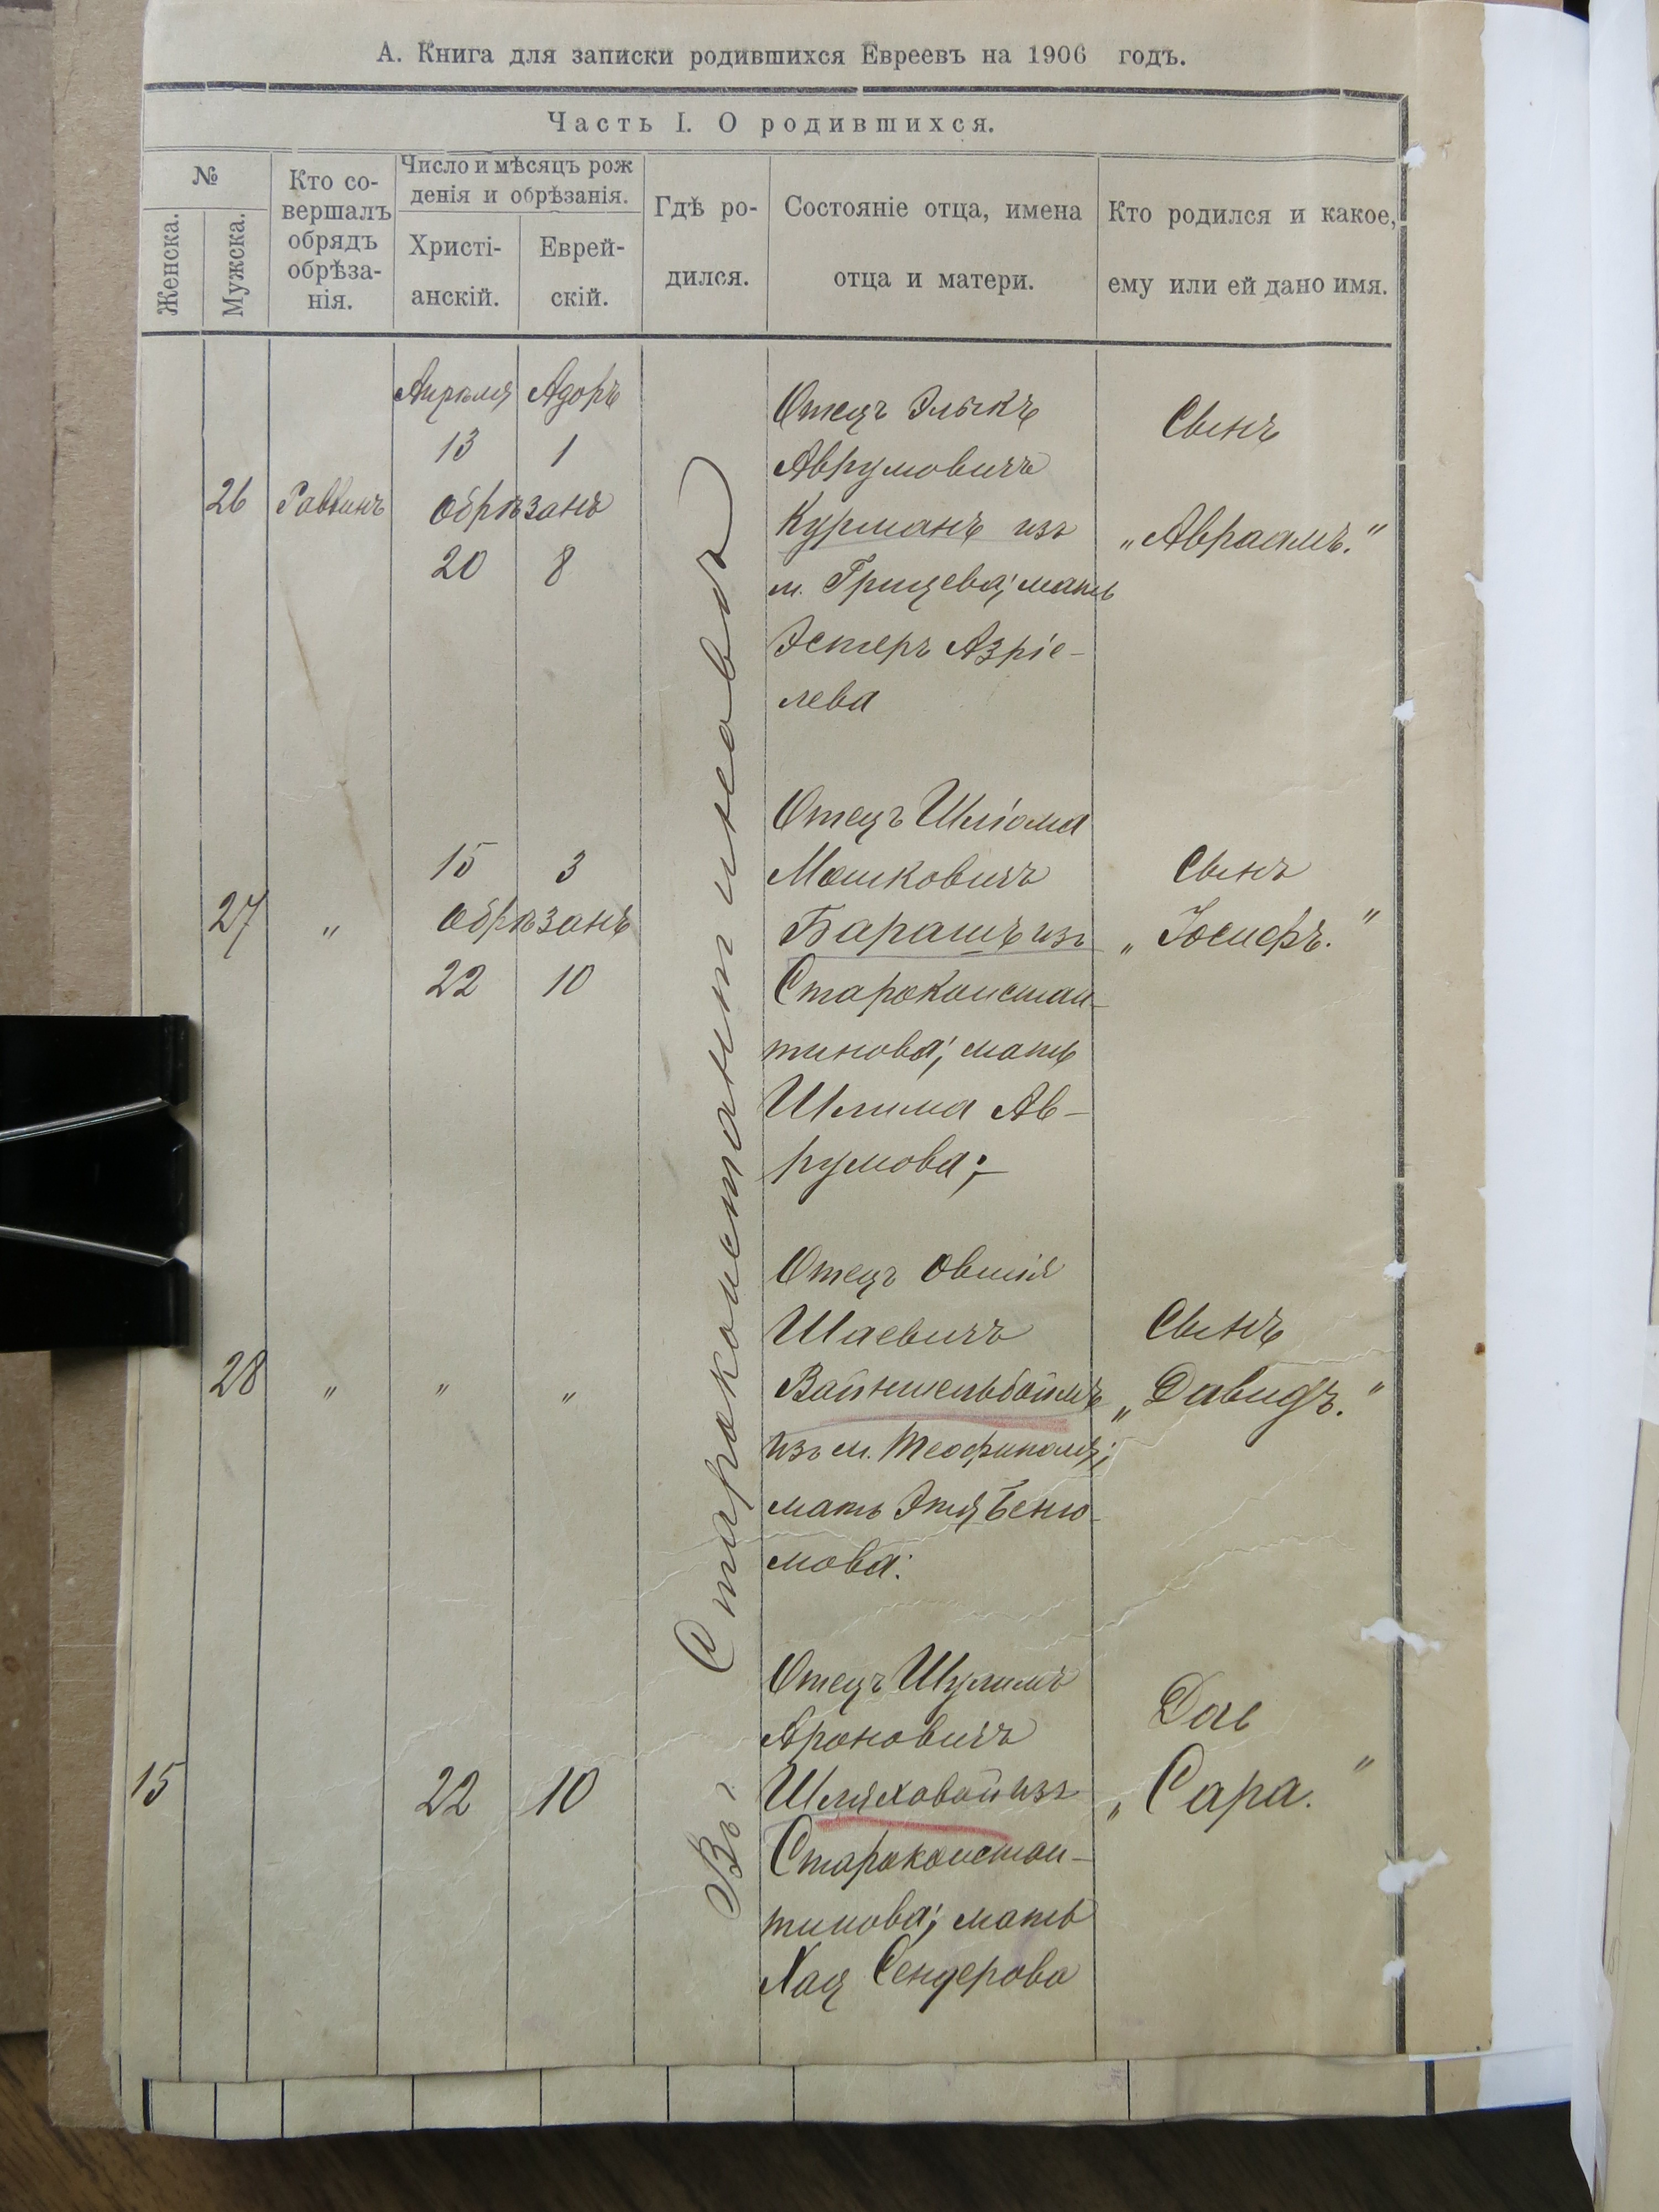 А. Книга для записки родившихся Евреевъ на 1906 годъ.
Часть I. О родившихся.
№
Женска.
Мужска.
Кто со-
вершалъ
обрядъ
обрѣза-
нія.
Число и мѣсяцъ рож
денія и обрѣзанія.
Христі-
анскій.
Еврей-
скій.
Гдѣ ро-
дился.
Состояніе отца, имена
отца и матери.
Кто родился и какое,
ему или ей дано имя.
Въ Староконстантиновѣ
26
Раввинъ
Апрѣля Адоръ
13 1
обрѣзанъ
20 8
Отецъ Элыкъ
Аврумовичъ
Курманъ изъ
м. Грицева; мать
Эстеръ Азріе-
лева
Сынъ
„Авраамъ.“
27
„
15 3
обрѣзанъ
22 10
Отецъ Шліома
Мошковичъ
Барашъ изъ
Староконстан-
тинова; мать
Шлима Ав-
румова;-
Сынъ
„Іосифъ.“
28
„
„
„
Отецъ Овшія
Шаевичъ
Вайншельбоймъ
изъ м. Теофиполя;
мать Этя Беню-
мова:
Сынъ
„Давидъ.“
15
22 10
Отецъ Шулимъ
Ароновичъ
Шляховой изъ
Староконстан-
тинова; мать
Хая Сендерова
Дочь
„Сара.“